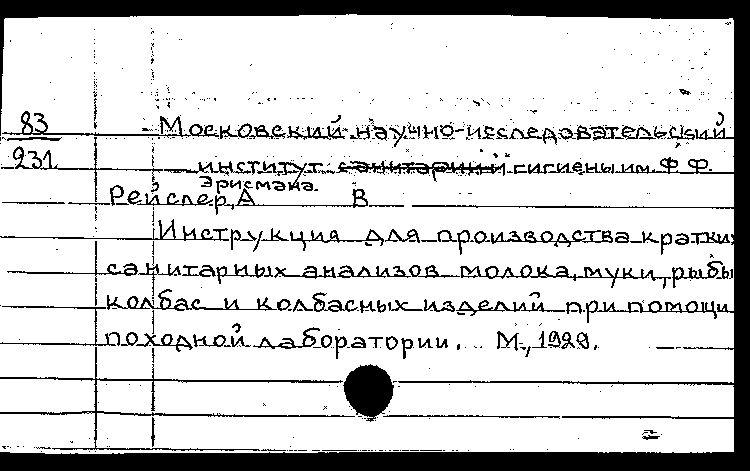 83
231
Московский научно-исследовательский
институт санитарии и гигиены им. Ф.Ф.
Эрисмана.
Рейслер, А В
Инструкция для производства кратких
санитарных анализов молока, муки, рыбы
колбас и колбасных изделий при помощи
походной лаборатории. М., 1929.